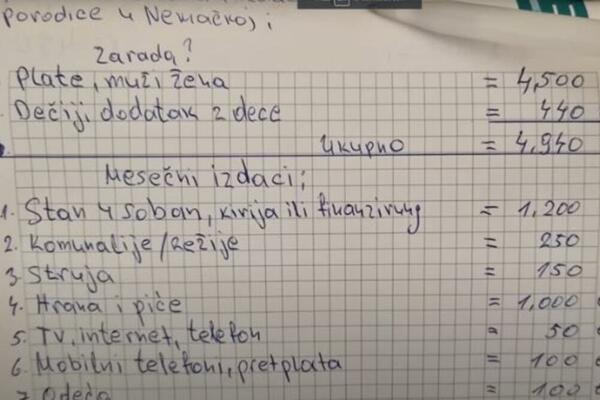 porodice u Nemačkoj;
Zarada?
Plate, muž i žena = 4,500
Dečiji dodatak 2 dece = 440
Ukupno = 4,940
Mesečni izdaci;
1. Stan 4 soban, kirija ili finanzirung = 1,200
2. Komunalije/Režije = 250
3. Struja = 150
4. Hrana i piće = 1,000
5. TV, internet, telefon = 50
6. Mobilni telefoni, pretplata = 100
7. Odeća = 100